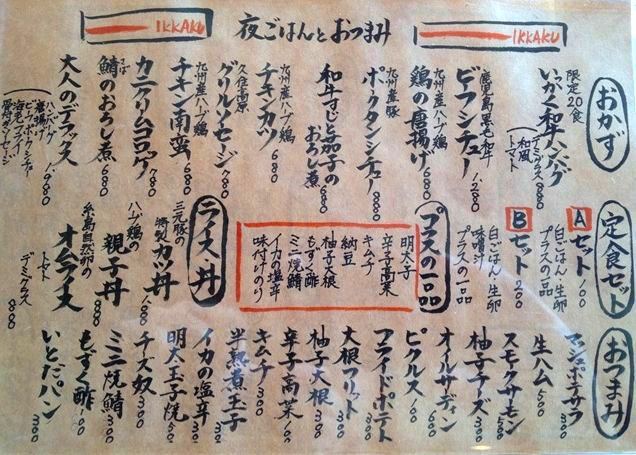 IKKAKU
夜ごはんとおつまみ
IKKAKU
おかず
限定20食
いっかく和牛ハンバーグ 980
デミグラス
和風
トマト
鹿児島黒毛和牛
ビーフシチュー 1.280
九州産ハーブ鶏
鶏の唐揚げ 680
九州産豚
ポークタンシチュー 880
和牛すじと茄子の
おろし煮 680
九州産ハーブ鶏
チキンカツ 680
久住高原
グリルソーセージ
九州産ハーブ鶏
チキン南蛮 680
カニクリームコロッケ 780
鯖のおろし煮 680
さば
大人のデラックス 1.980
ハンバーグ
ビーフorポークシチュー
唐揚げ
海老フライ
骨付ソーセージ
定食セット
Aセット 100
白ごはん 生卵
プラスの一品
Bセット 200
白ごはん 生卵
味噌汁
プラスの一品
プラスの一品
明太子
辛子高菜
キムチ
納豆
柚子大根
もずく酢
ミニ焼鯖
イカの塩辛
味付けのり
ライス・丼
三元豚の
特製カツ丼
ハーブ鶏の
親子丼 800
糸島自然卵の
オムライス
トマト
デミグラス 880
おつまみ
マッシュポテサラ 300
生ハム 500
スモークサーモン 500
柚子チーズ 300
オイルサーディン 600
ピクルス 100
フライドポテト
大根フリット 300
柚子大根 300
辛子高菜 100
キムチ 300
半熟煮玉子
イカの塩辛 300
明太玉子焼
チーズ奴 300
ミニ焼鯖 300
もずく酢 100
いとだパン 300